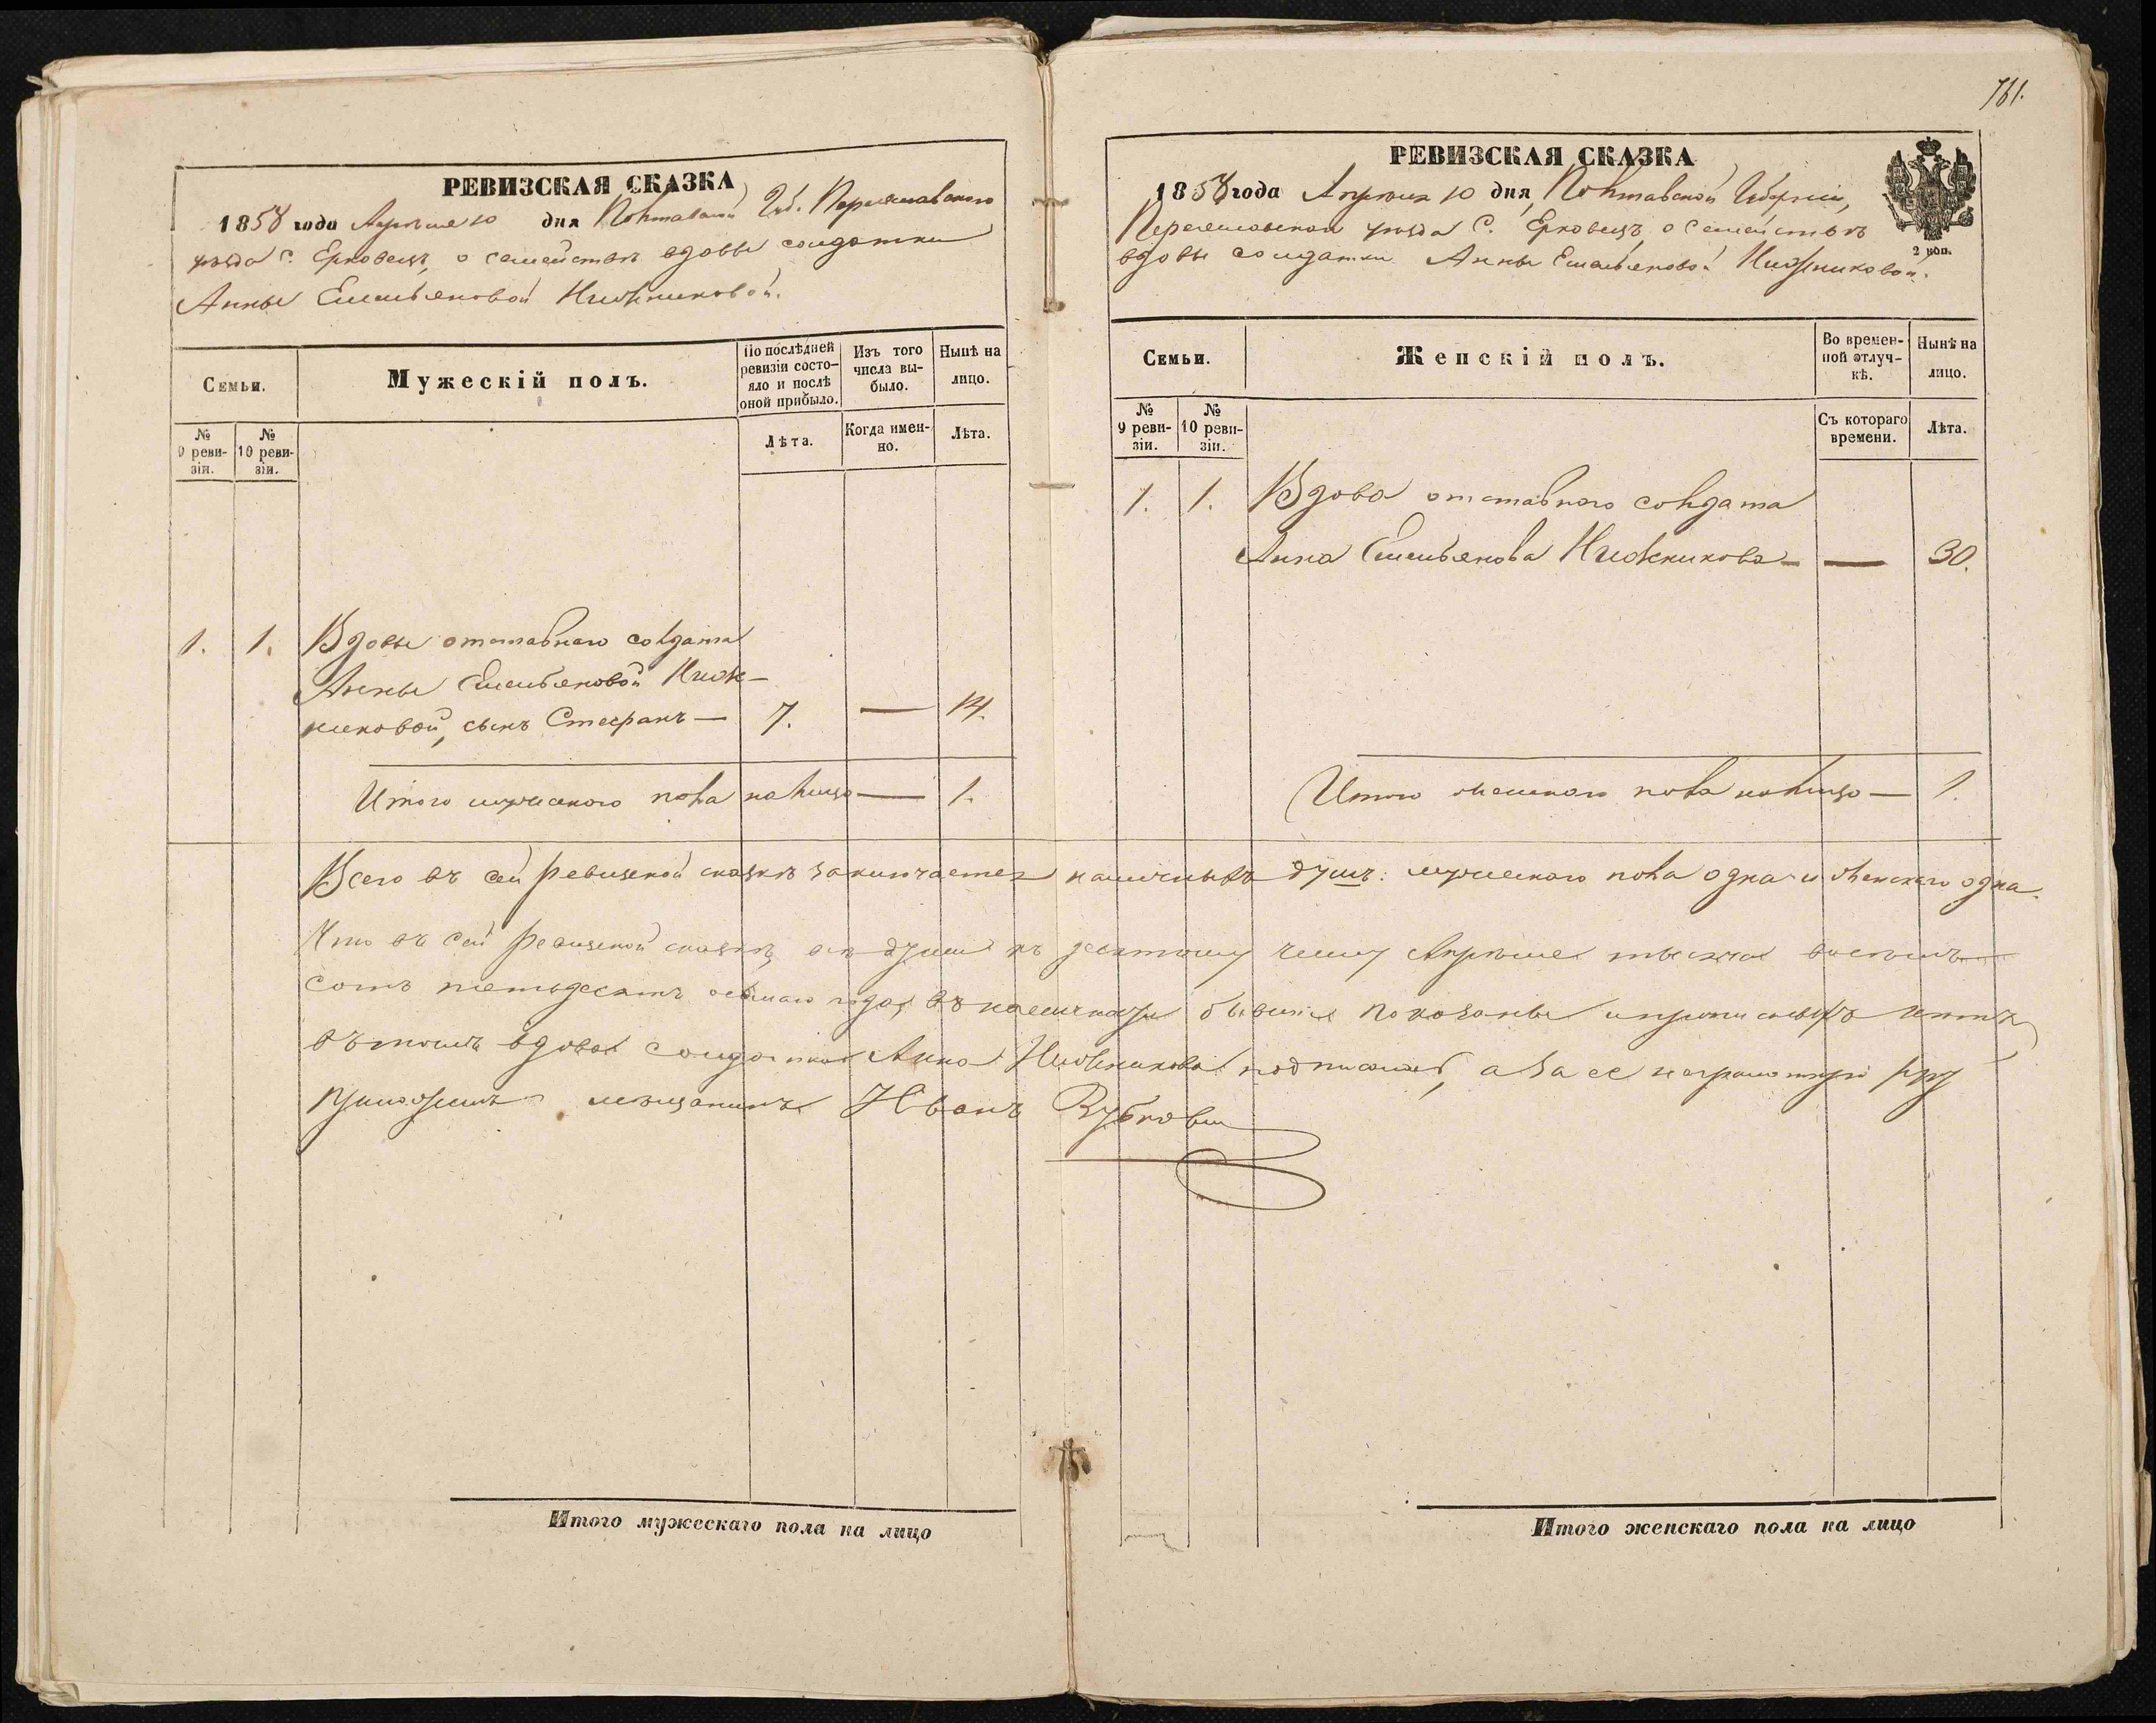 РЕВИЗСКАЯ СКАЗКА
1858 года Апреля 10 дня Полтавской Губ. Переяславского
уезда С. Ерковець, о семействе вдовы солдатки
Анны Емельяновой Нижниковой.
Семьи.
Мужескій полъ.
По послѣдней ревизіи состояло и послѣ оной прибыло.
Изъ того числа выбыло.
Нынѣ на лицо.
№ 9 ревизіи.
№ 10 ревизіи.
Лѣта.
Когда именно.
Лѣта.
1. 1. Вдовы отставнаго солдата
Анны Емельяновой Ниж-
никовой, сынъ Стефанъ — 7. — 14.
Итого мужескаго пола на лицо — 1.
761.
РЕВИЗСКАЯ СКАЗКА
1858 года Апреля 10 дня, Полтавской Губерніи,
Переяславскаго уезда С. Ерковець, о семействе
вдовы солдатки Анны Емельяновой Нижниковой.
2 коп.
Семьи.
Женскій полъ.
Во временной отлучкѣ.
Нынѣ на лицо.
№ 9 ревизіи.
№ 10 ревизіи.
Съ котораго времени.
Лѣта.
1. 1. Вдова отставнаго солдата
Анна Емельянова Нижникова — — 30.
Итого женскаго пола на лицо — 1.
Всего въ сей ревизской сказкѣ заключается наличныхъ душъ: мужескаго пола одна и женскаго одна.
Что въ сей ревизской сказкѣ все души къ десятому числу Апреля тысяча восемь
сотъ пятьдесятъ осьмаго года, въ наличности бывшія показаны и прописныхъ нетъ
въ томъ вдова солдатка Анна Нижникова подписалась, а за ее неграмотную руку
приложилъ мещанинъ Иванъ
Итого мужескаго пола на лицо
Итого женскаго пола на лицо